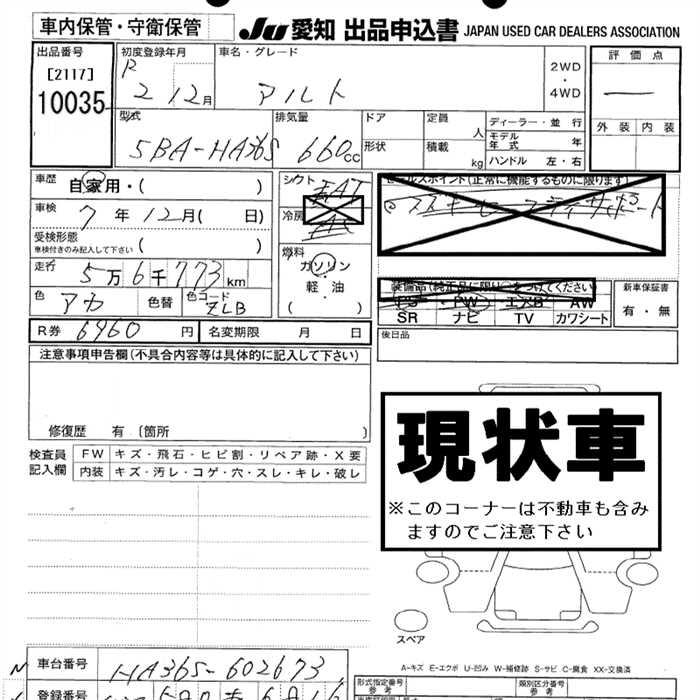 車内保管・守衛保管
JU 愛知 出品申込書 JAPAN USED CAR DEALERS ASSOCIATION
出品番号
[2117]
10035
初度登録年月
R 2 12月
車名・グレード
アルト
2WD
・
4WD
評価点
外装 内装
型式
5BA-HA36S
排気量
660cc
ドア
形状
定員 人
積載 kg
ディーラー・並行
モデル年式 年
ハンドル 左・右
車歴
自家用・( )
車検
7年12月( 日)
受検形態
車検付きのみ記入して下さい ( )
走行
5万6千773km
色 アカ 色替 色コード ZLB
シフト
FAT
冷房
AC
燃料
ガソリン
・
軽・油
( )
セールスポイント(正常に機能するものに限ります)
装備品(純正品に限り○をつけてください)
PS ・ PW ・ エアB ・ AW
SR ナビ TV カワシート
新車保証書
有・無
後日品
R券 6960 円 名変期限 月 日
注意事項申告欄(不具合内容等は具体的に記入して下さい)
修復歴 有 〔箇所 〕
検査員記入欄
FW キズ・飛石・ヒビ割・リペア跡・X要
内装 キズ・汚レ・コゲ・穴・スレ・キレ・破レ
現状車
※このコーナーは不動車も含み
ますのでご注意下さい
スペア
A-キズ E-エクボ U-凹み W-補修跡 S-サビ C-腐食 XX-交換済
車台番号
HA36S-602673
登録番号
型式指定番号
参考
類別区分番号
参考